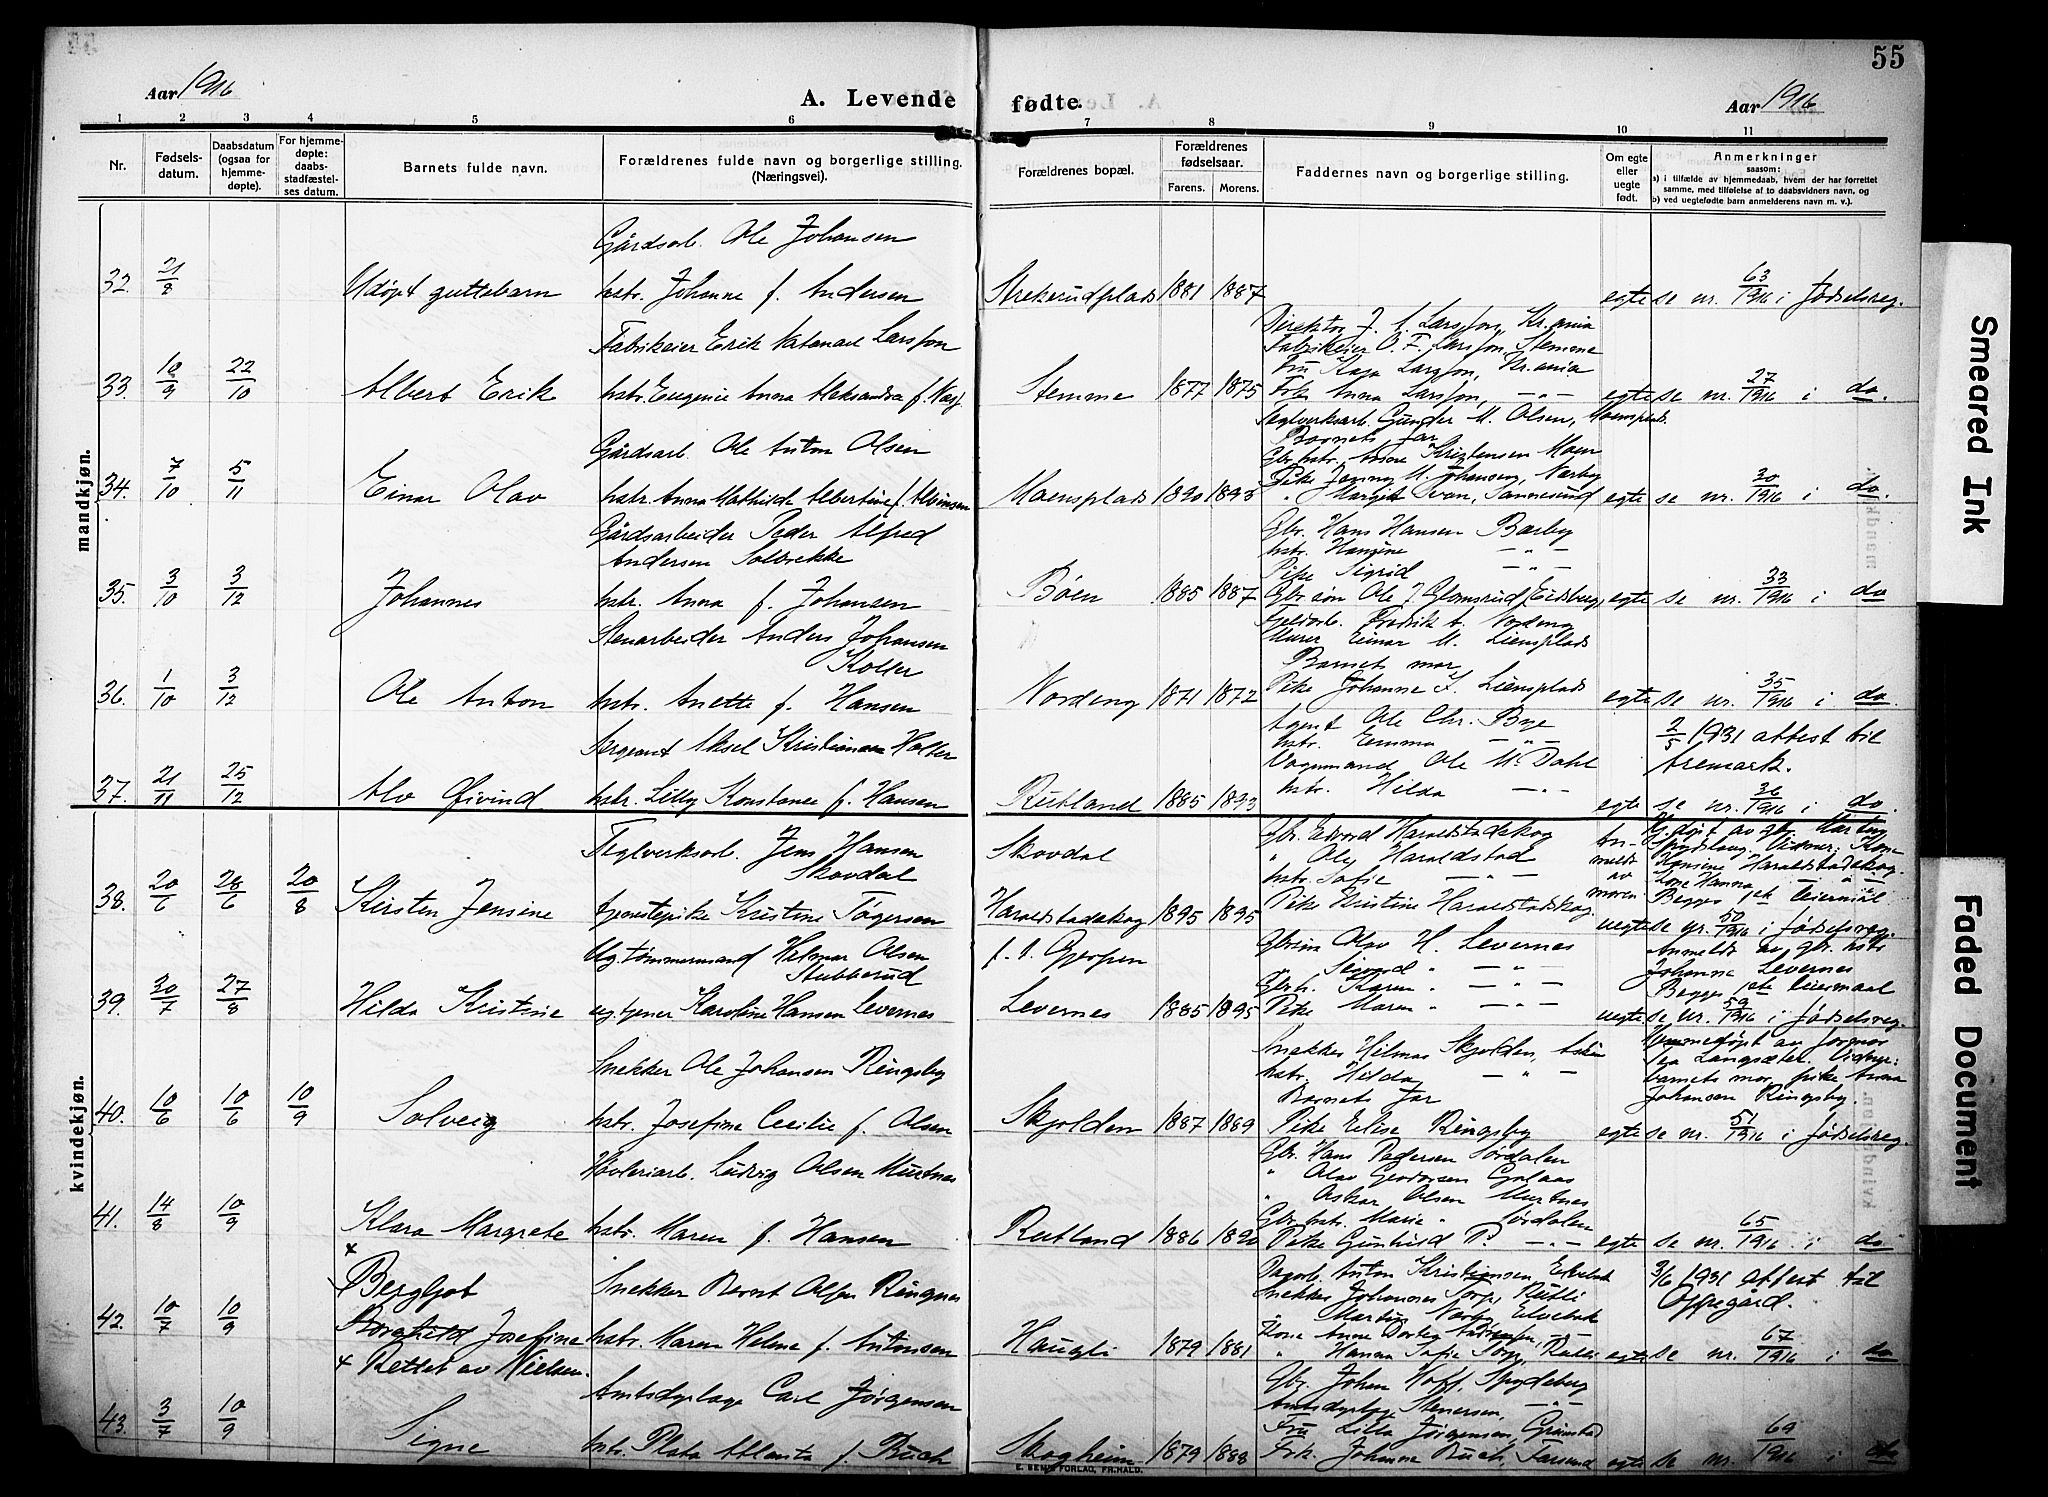 55
Aar 1916
A. Levende fødte.
Aar 1916
1 2 3 4 5 6 7 8 9 10 11
Nr.
Fødsels-
datum.
Daabsdatum
(ogsaa for
hjemme-
døpte).
For hjemme-
døpte:
daabs-
stadfæstel-
ses datum.
Barnets fulde navn.
Forældrenes fulde navn og borgerlige stilling.
(Næringsvei).
Forældrenes bopæl.
Forældrenes
fødselsaar.
Farens. Morens.
Faddernes navn og borgerlige stilling.
Om egte
eller
uegte
født.
Anmerkninger
saasom:
a) i tilfælde av hjemmedaab, hvem der har forrettet
samme, med tilføielse af to daabsvidners navn, og
b) ved uegtefødte barn anmelderens navn m. v.).
mandkjøn.
Gårdsarb. Ole Johansen
32. 21/8 Udøpt guttebarn hstr. Johanne f. Andersen Strekerudplads 1881 1887 egte se nr. 63/1916 i fødselsreg.
Direktør J. A. Larsson, Kr.ania
Fabrikeier Erik Natanael Larsson
Fabrikeier O. F. Larsson, Stemme
Fru Kaja Larsson, Kr.ania
33. 10/9 22/10 Albert Erik hstr. Eugenie Anna Aleksandra f. Stemme 1877 1875 Frk. Anna Larsson, -"- egte se nr. 27/1916 i do.
Teglverksarb. Gunder M. Olsen, Moensplads.
Barnets far
Gårdsarb. Ole Anton Olsen
Gbr. hstr. Kristensen Moen
Pike Jenny M. Johansen, Nærby
34. 7/10 5/11 Einar Olav hstr. Anna Mathilde Albertine f. Moensplads 1890 1893 " Margit Svan, Sannesund egte se nr. 30/1916 i do.
Gårdsarbeider Peder Alfred
Gbr. Hans Hansen Barby
Andersen Solbrekke
hstr. Hansine -"-
Pike Sigrid -"-
35. 3/10 3/12 Johannes hstr. Anna f. Johansen Bøen 1885 1887 Gbr. søn Ole J. Glomsrud, Eidsberg, egte se nr. 33/1916 i do
Stenarbeider Anders Johansen
Fjeldarb. Fredrik A. Nordeng
Murer Einar M. Liensplads
Koller
Barnets mor
36. 1/10 3/12 Ole Anton hstr. Anette f. Hansen Nordeng 1871 1872 Pike Johanne J. Liensplads egte se nr. 35/1916 i do.
Sergeant Aksel Kristiansen Holter
Agent Ole Chr. Bye
hstr. Emma -"-
Vognmand Ole M. Dahl
2/5 1931 attest til
Aremark.
37. 21/11 25/12 Alv Øivind hstr. Lilly Konstance f. Hansen Rutland 1885 1893 hstr. Hilda -"- egte se nr. 36/1916 i do.
kvindekjøn.
Teglverksarb. Jens Hansen
Skovdal
Skovdal
Gbr. Edvard Haraldstadskog
" Ole Haraldstad
hstr. Sofie -"-
An-
meldt
av
moren.
Hj.døpt av gbr. Martin
Spydslaug. Vidner: Kone
Hansine Haraldstadskog.
Lone Hanna -"-
Begges 1ste leiermål
38. 20/6 28/6 20/8 Kirsten Jensine tjenestepike Kristine Tøgersen Haraldstadskog 1895 1895 Pike Kristine Haraldstadskog uegte se nr. 50/1916 i fødselsreg.
Ug. tømmermand Helmar Olsen
Stubberud
f. i Gjerpen
Gbr.søn Olav H. Levernes
Sigurd " -"-
Gbr.h. Karen " -"-
Anmeldt av gbr. hstr
Johanna Levernes
Begges 1ste leiermaal
39. 30/7 27/8 Hilda Kristine ug. tjener Karoline Hansen Levernes Levernes 1885 1895 Pike Maren " -"- uegte se nr. 59/1916 i fødselsreg.
Snekker Ole Johansen Ringsby
Snekker Hilmar Skjolden, Askim
hstr. Hilda -"-
Barnets far
Hjemmedøpt av jormor
Tea Langsæter. Vidner:
barnets mor, pike Anna
Johansen Ringsby.
40. 10/6 10/6 10/9 Solveig hstr. Josefine Cecilie f. Olsen Skjolden 1887 1889 Pike Elise Ringsby egte se nr. 51/1916 i fødselsreg.
Høvleriarb. Ludvig Olsen Murtnes
Gbr. Hans Pedersen Sørdalen
" Olav
" Oskar Olsen Murtnes
Gbr. hstr. Marie " Sørdalen
41. 14/8 10/9 Klara Margrete hstr. Maren f. Hansen Rutland 1886 1890 Pike Gunhild P. -"- egte se nr. 65/1916 i do.
x
x Bergljot
Snekker Bernt Olsen Ringnes
Dagarb. Anton Kristiansen,
Snekker Johannes Torp,
3/6 1931 attest til
Oppegård.
42. 10/7 10/9 Borghild Josefine hstr. Maren Helene f. Antonsen Haugli 1879 1881 " Hanna Sofie Torp, egte se nr. 67/1916 i do
x Rettet av Nielsen.
Amtsdyrlæge Carl Jørgensen
Gbr. Johan Hoff, Spydeberg
Amtsdyrlæge Stenersen, -"-
Fru Lilla Jørgensen, Grimstad
43. 3/7 10/9 Signe hstr. Plata Atlanta f. Buch Skogheim 1879 1888 Frk. Johanne Buch, Farsund egte se nr. 69/1916 i do
E. SEMS FORLAG, FR.HALD.
Smeared Ink
Faded Document